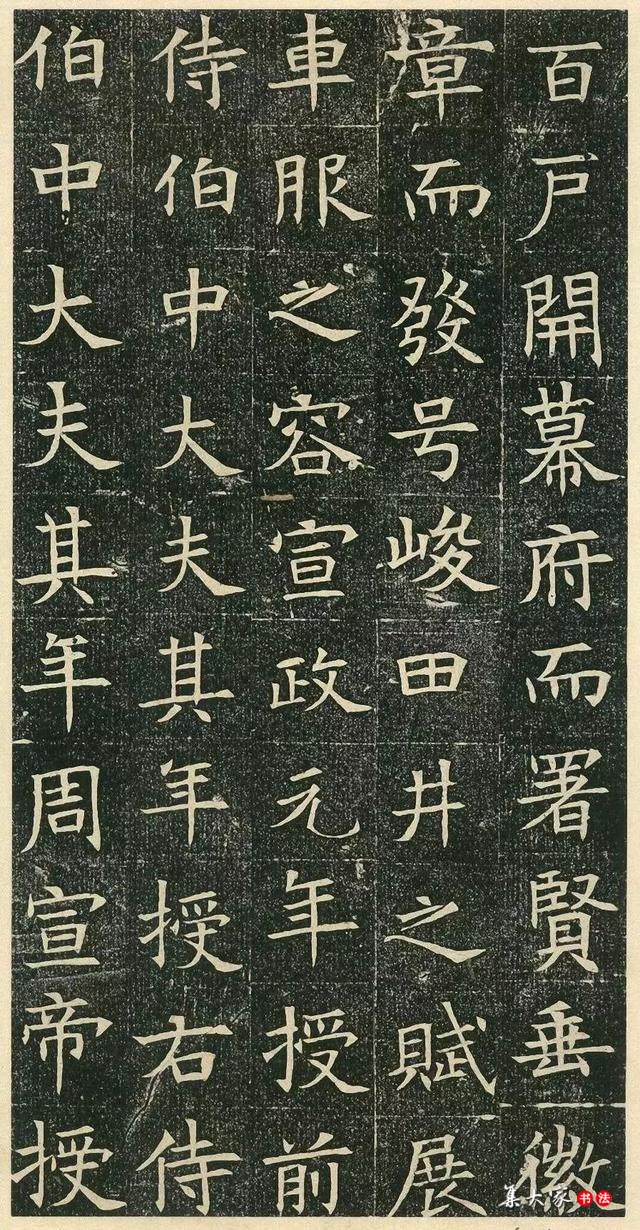 百戶開幕府而署賢垂徽
章而發号峻田井之賦展
車服之容宣政元年授前
侍伯中大夫其年授右侍
伯中大夫其年周宣帝授
集大家书法